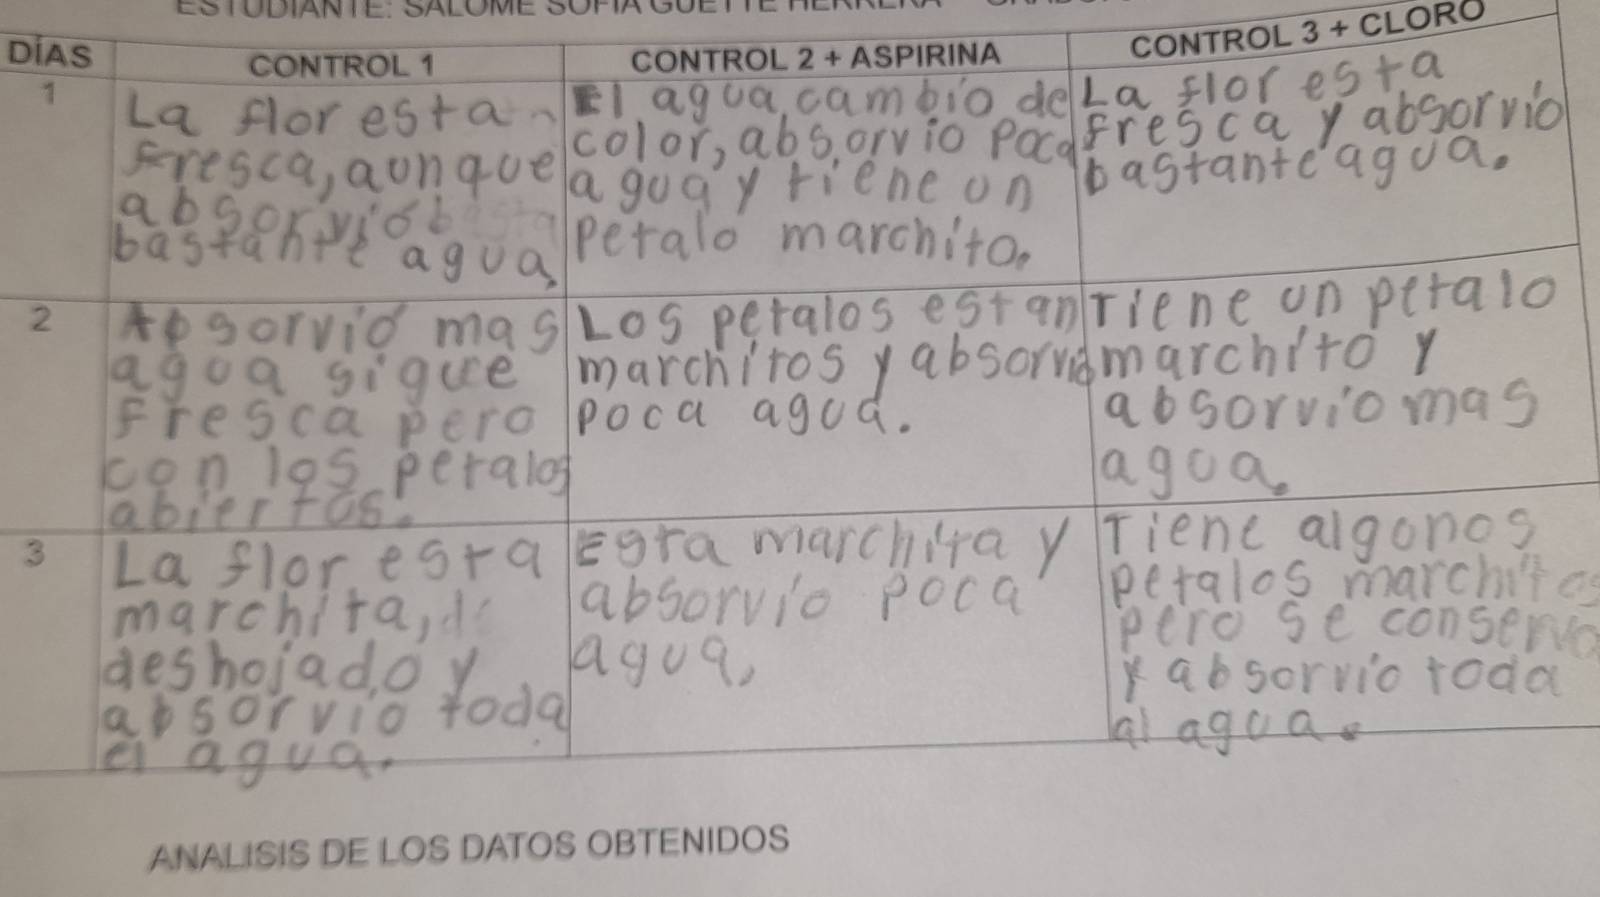 ESTUDIANTE: SALOME SOFIA GUETTE HERRERA
DÍAS
CONTROL 1
CONTROL 2 + ASPIRINA
CONTROL 3 + CLORO
1
La flor esta
fresca, aunque
absorvió
bastante agua,
El agua cambio de
color, absorvio poca
agua y tiene un
petalo marchito.
La flor esta
fresca y absorvio
bastante agua.
2
Absorvió mas
agua sigue
fresca pero
con los petalos
abiertos.
Los petalos estan
marchitos y absorvio
poca agua.
Tiene un petalo
marchito y
absorvio mas
agua.
3
La flor esta
marchita,
deshojado y
absorvio toda
el agua.
Esta marchita y
absorvio poca
agua,
Tiene algunos
petalos marchitos
pero se conserva
y absorvio toda
al agua.
ANALISIS DE LOS DATOS OBTENIDOS